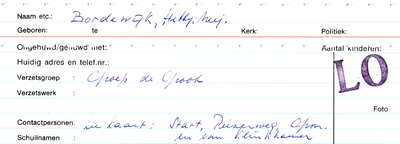 Naam etc.: Bordewijk, Hetty, Mej.
Geboren: te Kerk: Politiek:
Ongehuwd/gehuwd met: Aantal kinderen:
Huidig adres en telef.nr.:
Verzetsgroep : Groep de Groot
Verzetswerk :
LO
Foto
Contactpersonen: zie kaart: Start,
Schuilnaam : en van Klinkhamer